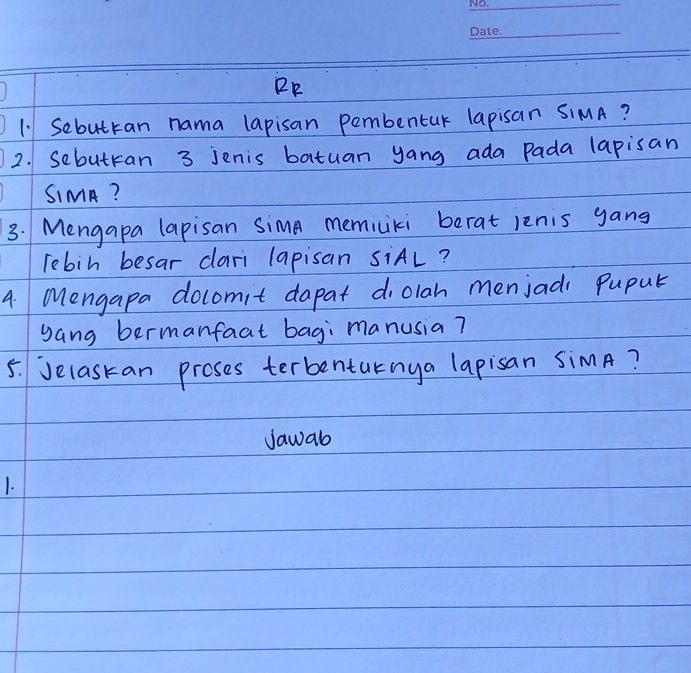 No.
Date.
PR
1. Sebutkan nama lapisan pembentuk lapisan SIMA ?
2. Sebutkan 3 jenis batuan yang ada pada lapisan
SIMA ?
3. Mengapa lapisan SIMA memiliki berat jenis yang
lebih besar dari lapisan SIAL ?
4. Mengapa dolomit dapat diolah menjadi Pupuk
yang bermanfaat bagi manusia ?
5. Jelaskan proses terbentuknya lapisan SIMA ?
Jawab
1.